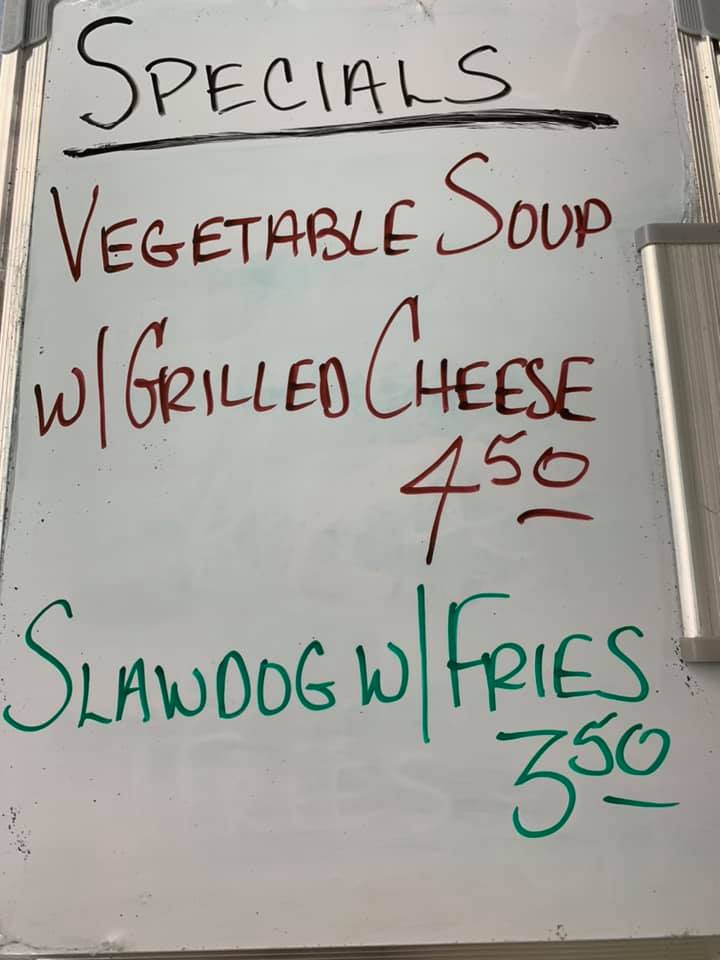 SPECIALS
VEGETABLE SOUP
W/ GRILLED CHEESE
4 50
SLAWDOG W/ FRIES
3 50